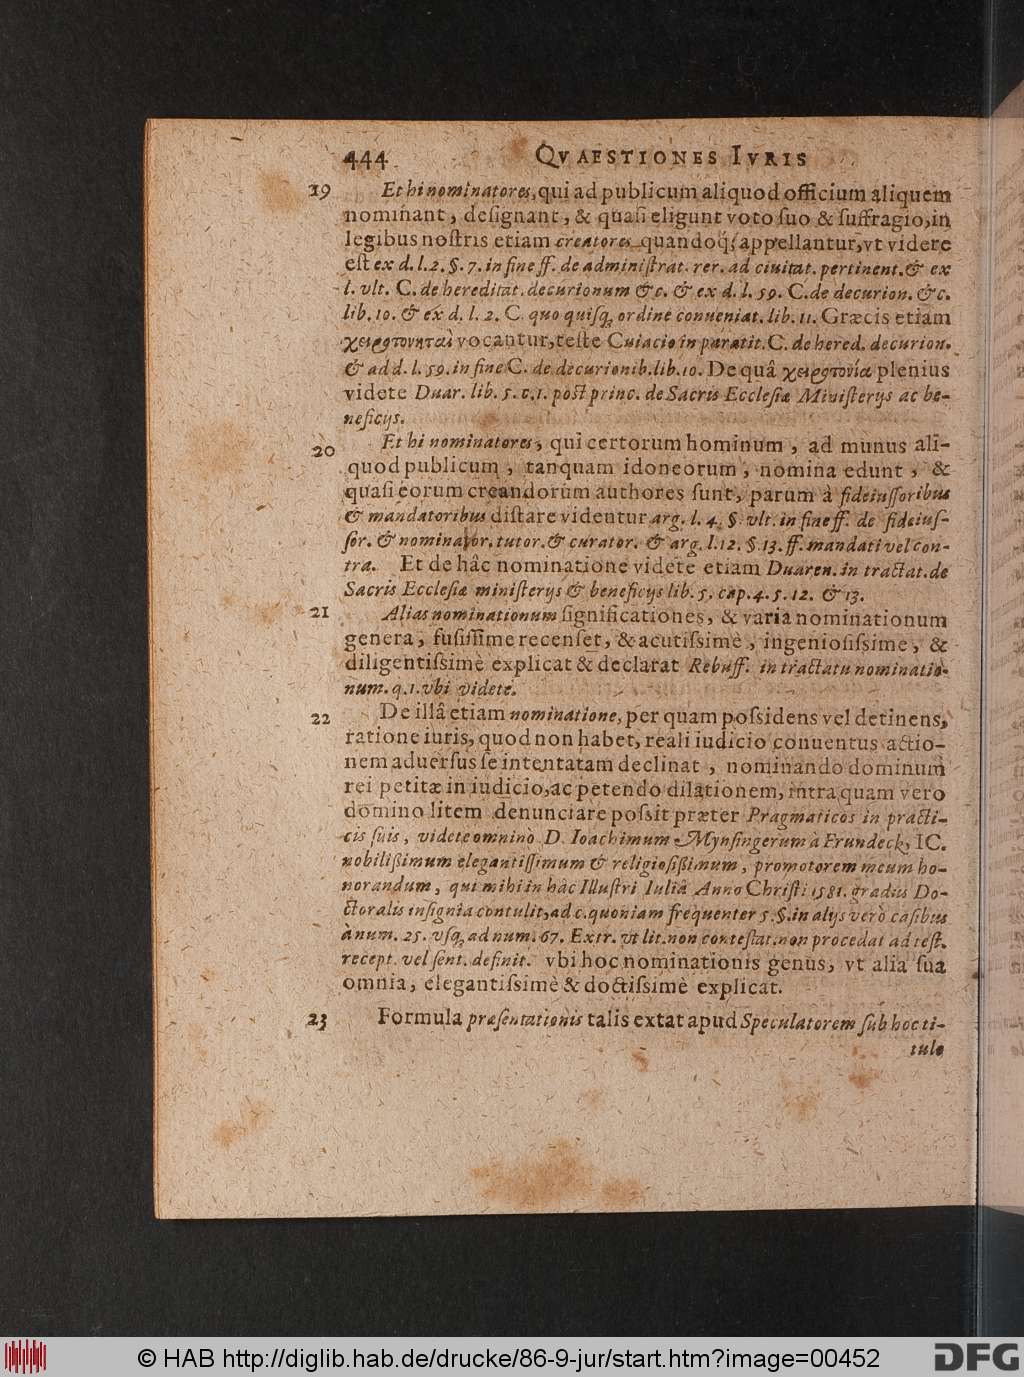 444 QVAESTIONES IVRIS
19 Et hi nominatores, qui ad publicum aliquod officium aliquem
nominant, deſignant, & quaſi eligunt voto ſuo & ſuffragio, in
legibus noſtris etiam creatores quandoq́; appellantur, vt videre
eſt ex d. l. 2. §. 7. in fine ff. de adminiſtrat. rer. ad ciuitat. pertinent. & ex
l. vlt. C. de hereditat. decurionum &c. & ex d. l. 59. C. de decurion. &c.
lib. 10. & ex d. l. 2. C. quo quiſq; ordine conueniat. lib. 11. Græcis etiam
χειροτονηταὶ vocantur, teſte Cuiacio in paratit. C. de hered. decurion.
& ad d. l. 59. in fine C. de decurionib. lib. 10. De quâ χειροτονία plenius
videte Duar. lib. 5. c. 1. poſt princ. de Sacris Eccleſiæ Miniſterijs ac be-
neficijs.
20 Et hi nominatores, qui certorum hominum, ad munus ali-
quod publicum, tanquam idoneorum, nomina edunt, &
quaſi eorum creandorum authores ſunt, parum à fideiuſſoribus
& mandatoribus diſtare videntur arg. l. 4. §. vlt. in fine ff. de fideiuſ-
ſor. & nominator. tutor. & curator. & arg. l. 12. §. 13. ff. mandati vel con-
tra. Et de hâc nominatione videte etiam Duaren. in tractat. de
Sacris Eccleſiæ miniſterijs & beneficijs lib. 5. cap. 4. 5. 12. & 13.
21 Alias nominationum ſignificationes, & varia nominationum
genera, fuſiſſime recenſet, & acutiſsimè, ingenioſiſsime, &
diligentiſsimè explicat & declarat Rebuff. in tractatu nominatio-
num. q. 1. vbi videte.
22 De illâ etiam nominatione, per quam poſsidens vel detinens,
ratione iuris, quod non habet, reali iudicio conuentus actio-
nem aduerſus ſe intentatam declinat, nominando dominum
rei petitæ in iudicio, ac petendo dilationem, intra quam vero
domino litem denunciare poſsit præter Pragmaticos in practi-
cis ſuis, videte omninò D. Ioachimum Mynſingerum à Frundeck, IC.
nobilißimum elegantiſſimum & religioſißimum, promotorem meum ho-
norandum, qui mihi in hâc Illuſtri Iuliâ Anno Chriſti 1581. gradus Do-
ctoralis inſignia contulit, ad c. quoniam frequenter 5. §. in alijs verò caſibus
à num. 25. vſq; ad num. 67. Extr. vt lit. non conteſtat. non procedat ad teſt.
recept. vel ſent. definit. vbi hoc nominationis genus, vt alia ſua
omnia, elegantiſsimè & doctiſsimè explicat.
23 Formula præſentationis talis extat apud Speculatorem ſub hoc ti-
tulo
© HAB http://diglib.hab.de/drucke/86-9-jur/start.htm?image=00452
DFG